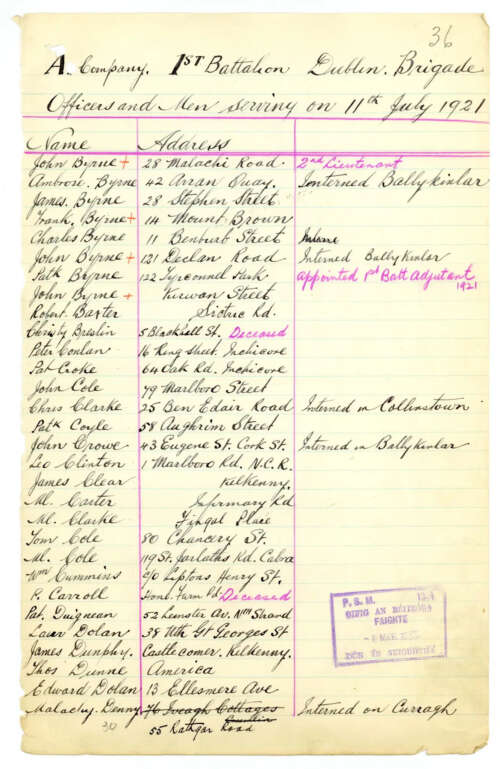 36
A. Company. 1ST Battalion Dublin. Brigade
Officers and Men Serving on 11th July 1921
Name Address
John Byrne + 28 Malachi Road. 2nd Lieutenant
Ambrose. Byrne 42 Arran Quay. Interned Ballykinlar
James. Byrne 28 Stephen Street
Frank. Byrne + 14 Mount Brown
Charles Byrne 11 Benburb Street
John Byrne + 121 Declan Road Interned Ballykinlar
Patk Byrne 122 Tyrconnell Park appointed 1st Batt Adjutant 1921
John Byrne + Kirwan Street
Robert. Baxter Sictric Rd.
Christy Breslin 5 Blackhall St. Deceased
Peter Conlan 16 King Street. Inchicore
Pat Croke 64 Oak Rd. Inchicore
John Cole 79 Marlboro Street
Chris Clarke 25 Ben Edair Road Interned in Collinstown
Patk Coyle 58 Aughrim Street
John Crowe 43 Eugene St. Cork St. Interned in Ballykinlar
Leo Clinton 1 Marlboro Rd. N.C.R.
James Clear Kilkenny.
Ml. Carter Infirmary Rd
Ml. Clarke Fingal Place
Tom Cole 80 Chancery St.
Ml. Cole 119 St. Jarlaths Rd. Cabra
Wm Cummins c/o Liptons Henry St.
P. Carroll Home Farm Rd. Deceased
Pat. Duignean 52 Leinster Av. Nth Strand
Laur Dolan 35 Nth Gt Georges St
James Dunphy Castlecomer. Kilkenny.
Thos Dunne America
Edward Dolan 13 Ellesmere Ave
Malachy. Denny 76 Iveagh Cottages Interned on Curragh
Crumlin
30 55 Rathgar Road
P. S. M.
OIFIG AN